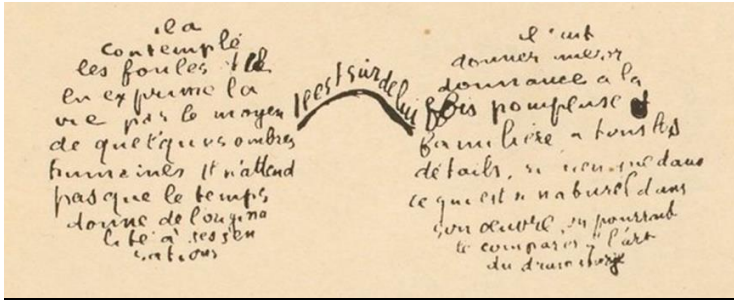 il a
contemplé
les foules et il
en exprime la
vie par le moyen
de quelques ombres
humaines Il n'attend
pas que le temps
donne de l'origina
lité à ses sen
sations
Il est sûr de lui
il sait
donner une or
donnance à la
fois pompeuse et
familière à tous les
détails, si bien que dans
ce qui est si naturel dans
son œuvre, on pourrait
le comparer à l'art
du dramaturge